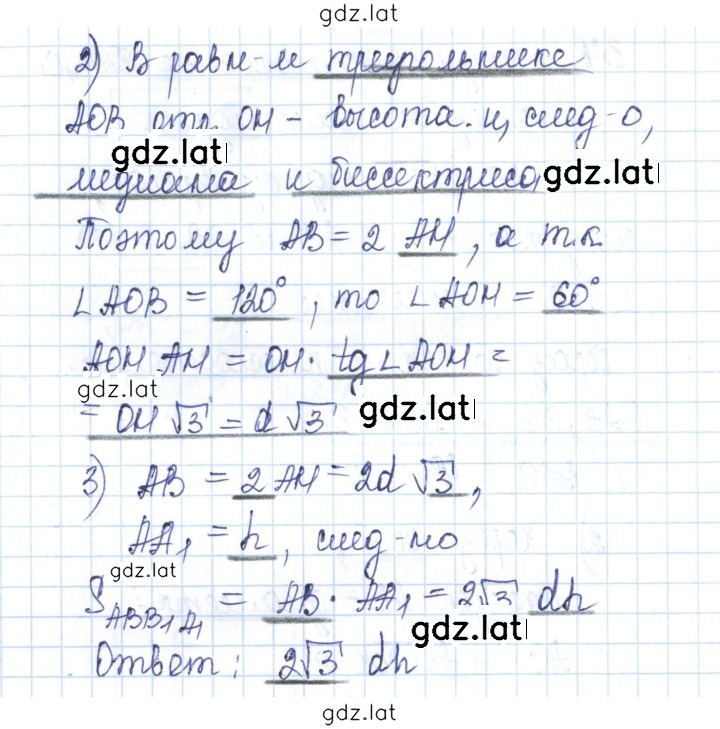 gdz.lat
2) В равн-м треугольнике
AOB отр. OH – высота и, след-о,
gdz.lat
медиана и биссектриса gdz.lat
Поэтому AB = 2 AH, а т.к
∠AOB = 120°, то ∠AOH = 60°
AOH AH = OH · tg∠AOH =
gdz.lat
= OH √3 = d √3 gdz.lat
3) AB = 2 AH = 2d √3,
AA₁ = h, след-но
gdz.lat
S ABB₁A₁ = AB · AA₁ = 2√3 dh
gdz.lat
Ответ: 2√3 dh
gdz.lat